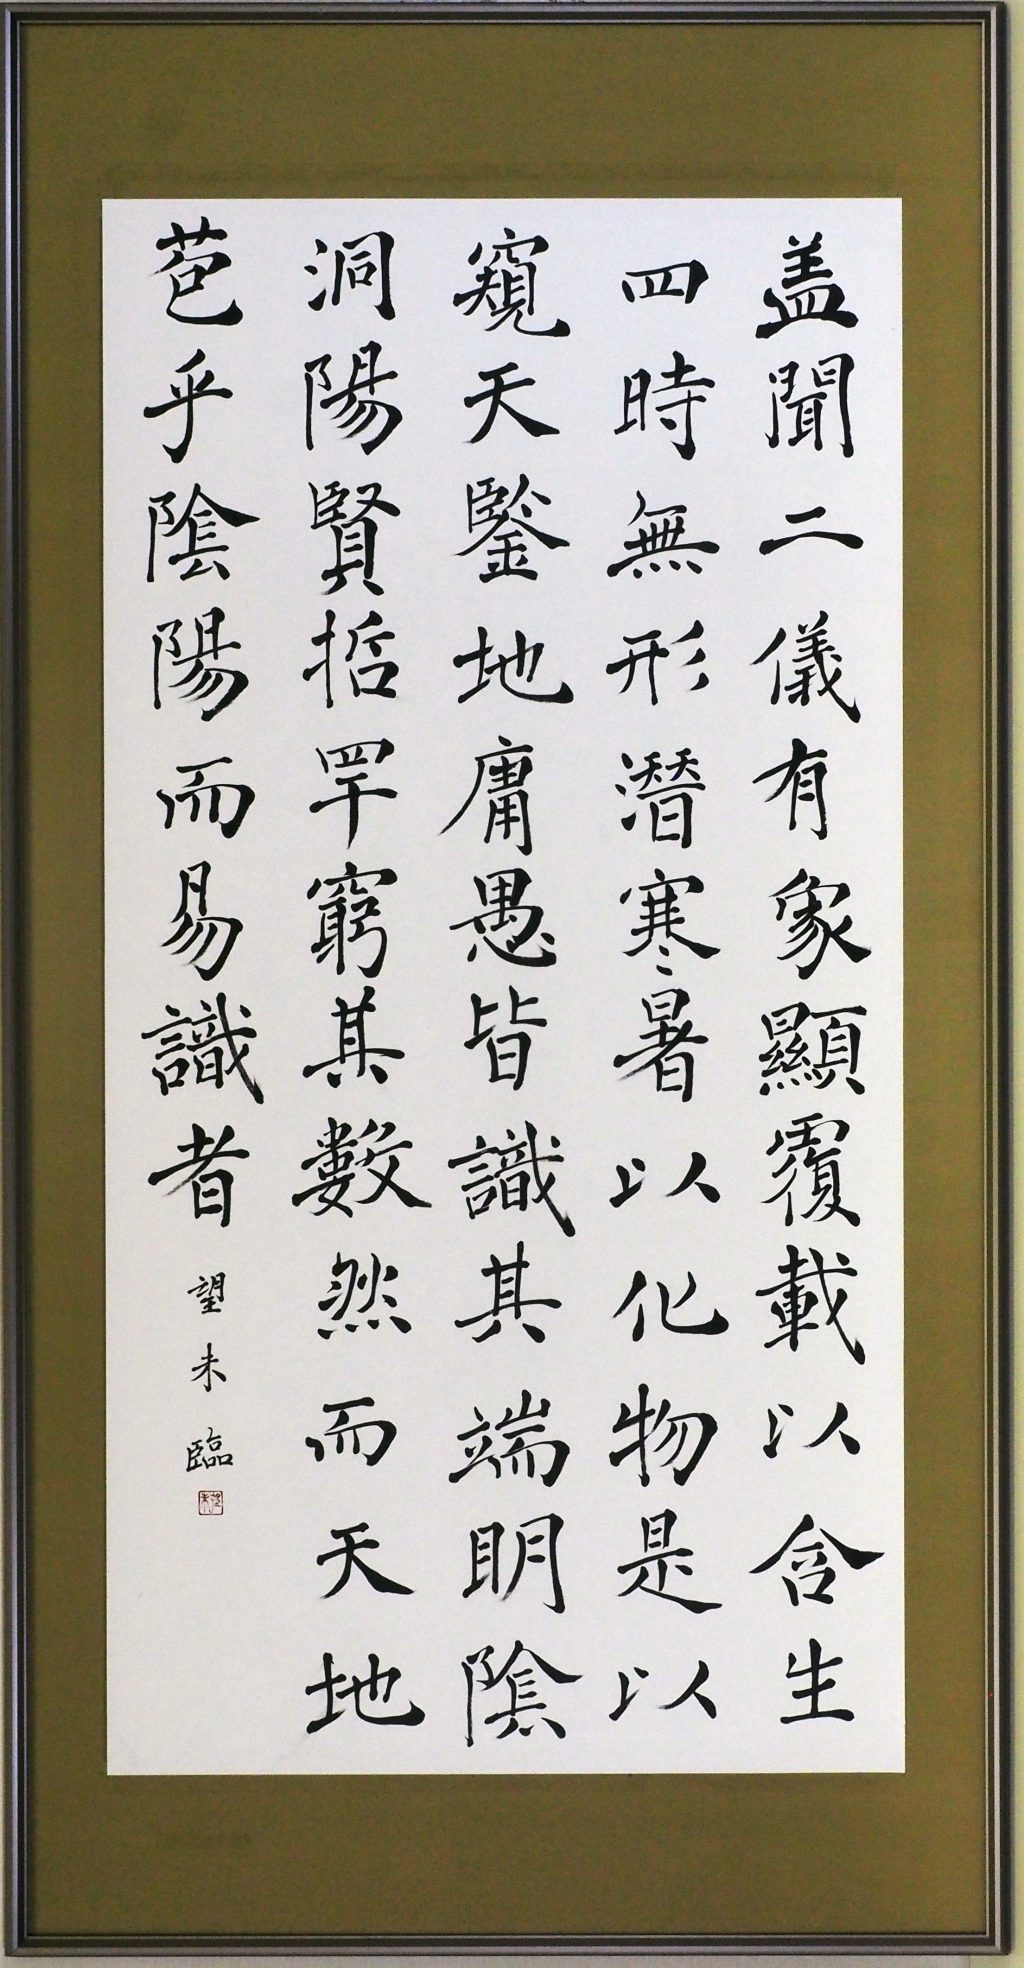 盖聞二儀有象顯覆載以含生
四時無形潛寒暑以化物是以
窺天鑒地庸愚皆識其端明陰
洞陽賢哲罕窮其數然而天地
苞乎陰陽而易識者
望未臨